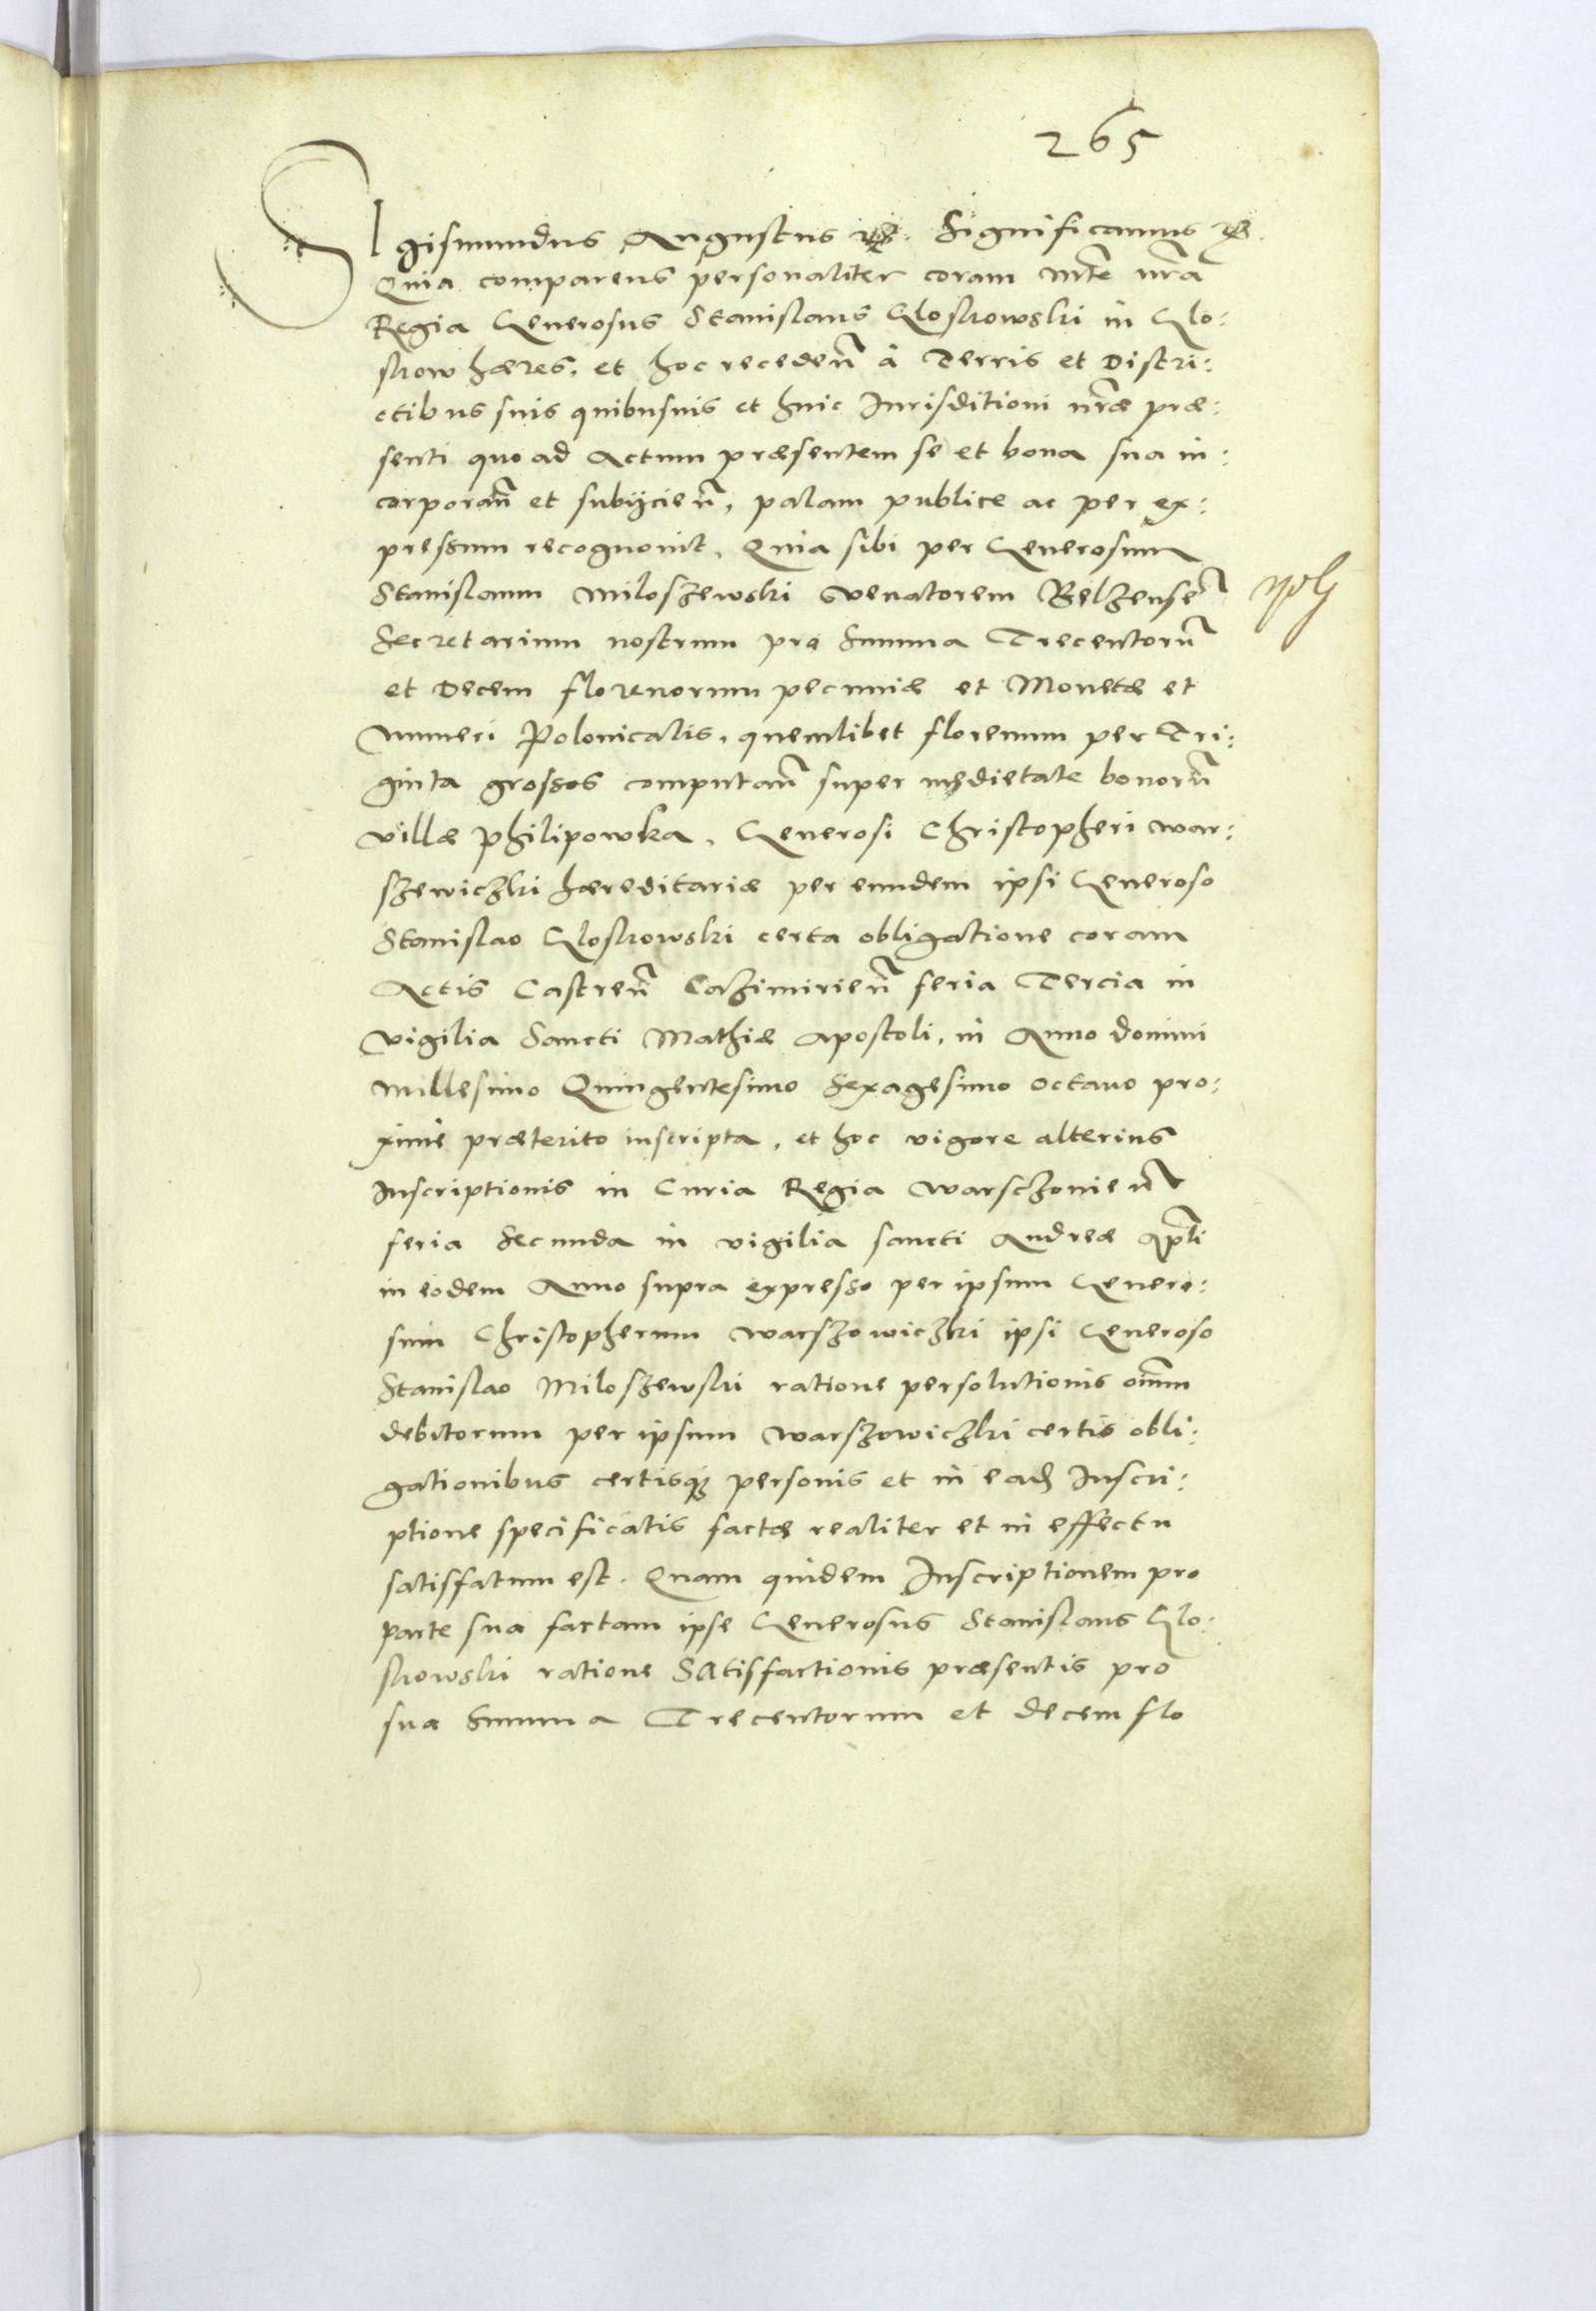 265
SIgismundus Augustus &c. Significamus &c.
Quia comparens personaliter coram Mte nrã
Regia Generosus Stanislaus Gloskowski in Glo:
skow hæres, et hoc recedeñ à Terris et Distri:
ctibus suis quibusuis et huic Iurisditioni nræ præ:
senti quo ad Actum præsentem se et bona sua in:
corporañ et subijcieñ, palam publice ac per ex:
pressum recognouit, Quia sibi per Generosum
Stanislaum Miloszewski Venatorem Belzenseñ
Secretarium nostrum pro Summa Trecentorũ
et Decem florenorum pecuniæ et Monetæ et
Numeri Polonicalis, quemlibet florenum per Tri:
ginta grossos computañ super medietate bonorũ
villæ Philipowka, Generosi Christopheri War:
szewiczki hæreditariæ per eundem ipsi Generoso
Stanislao Gloskowski certa obligatione coram
Actis Castreñ Cazimirieñ feria Tercia in
vigilia Sancti Mathiæ Apostoli, in Anno domini
Millesimo Quingentesimo Sexagesimo octauo pro:
xime præterito inscripta, et hoc vigore alterius
Inscriptionis in Curia Regia Warschouieñ
feria Secunda in vigilia sancti Andreæ Apli
in eodem Anno supra expresso per ipsum Genero:
sum Christopherum Warszowiczki ipsi Generoso
Stanislao Miloszewski ratione persolutionis omm
debitorum per ipsum Warszowiczki certis obli:
gationibus certisq3 personis et in ead Inscri:
ptione specificatis factæ realiter et in effectu
satisfatum est. Quam quidem Inscriptionem pro
parte sua factam ipse Generosus Stanislaus Glo:
skowski ratione Satisfactionis præsentis pro
sua Summa Trecentorum et decem flo